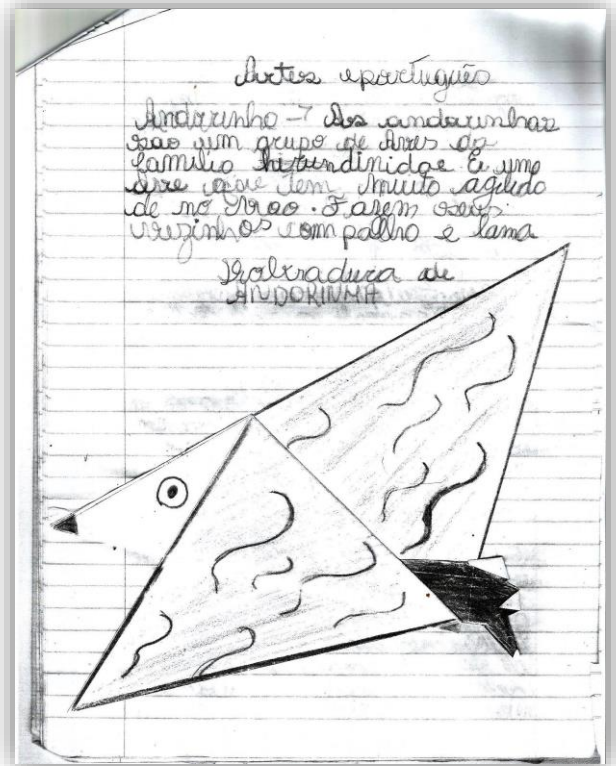 Artes e português
Andorinha → As andorinhas
são um grupo de Aves da
família hirundinidae É uma
Ave que tem muito agilida
de no Vôo. Fazem seus
com palha e lama
Dobradura de
ANDORINHA